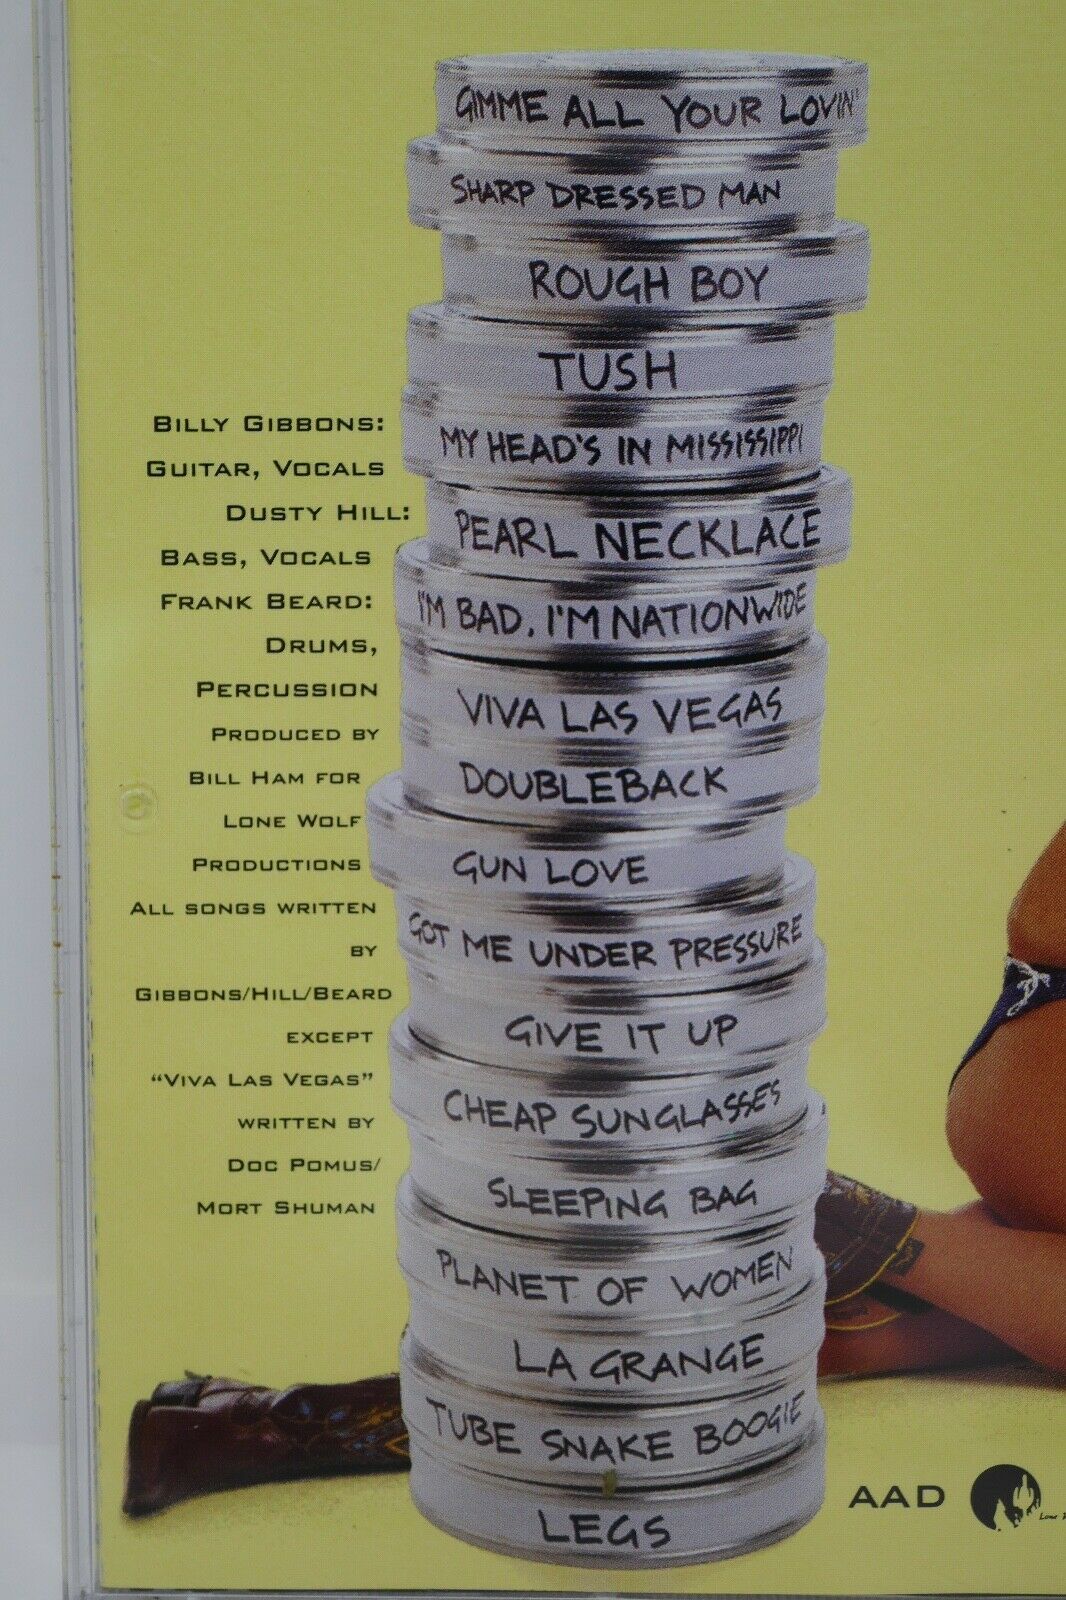 GIMME ALL YOUR LOVIN'
SHARP DRESSED MAN
ROUGH BOY
TUSH
MY HEAD'S IN MISSISSIPPI
PEARL NECKLACE
I'M BAD, I'M NATIONWIDE
VIVA LAS VEGAS
DOUBLEBACK
GUN LOVE
GOT ME UNDER PRESSURE
GIVE IT UP
CHEAP SUNGLASSES
SLEEPING BAG
PLANET OF WOMEN
LA GRANGE
TUBE SNAKE BOOGIE
LEGS
BILLY GIBBONS:
GUITAR, VOCALS
DUSTY HILL:
BASS, VOCALS
FRANK BEARD:
DRUMS,
PERCUSSION
PRODUCED BY
BILL HAM FOR
LONE WOLF
PRODUCTIONS
ALL SONGS WRITTEN
BY
GIBBONS/HILL/BEARD
EXCEPT
"VIVA LAS VEGAS"
WRITTEN BY
DOC POMUS/
MORT SHUMAN
AAD
Lone